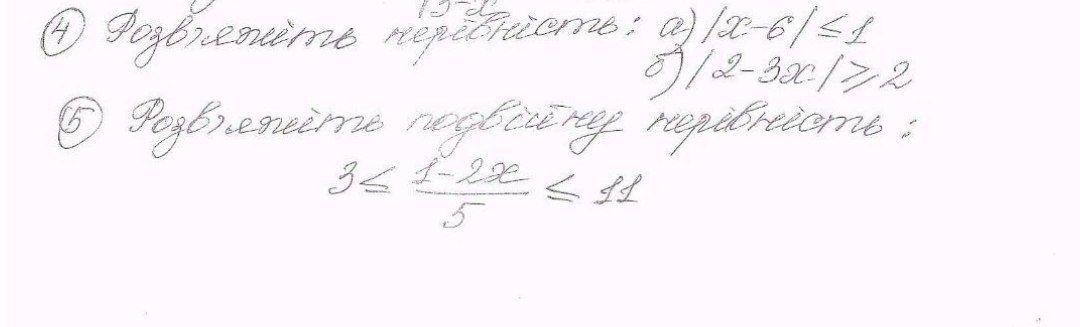 ④ Розв'яжіть нерівність: а) |x-6| ≤ 1
б) |2-3x| ≥ 2
⑤ Розв'яжіть подвійну нерівність:
3 ≤ (1-2x)/5 ≤ 11